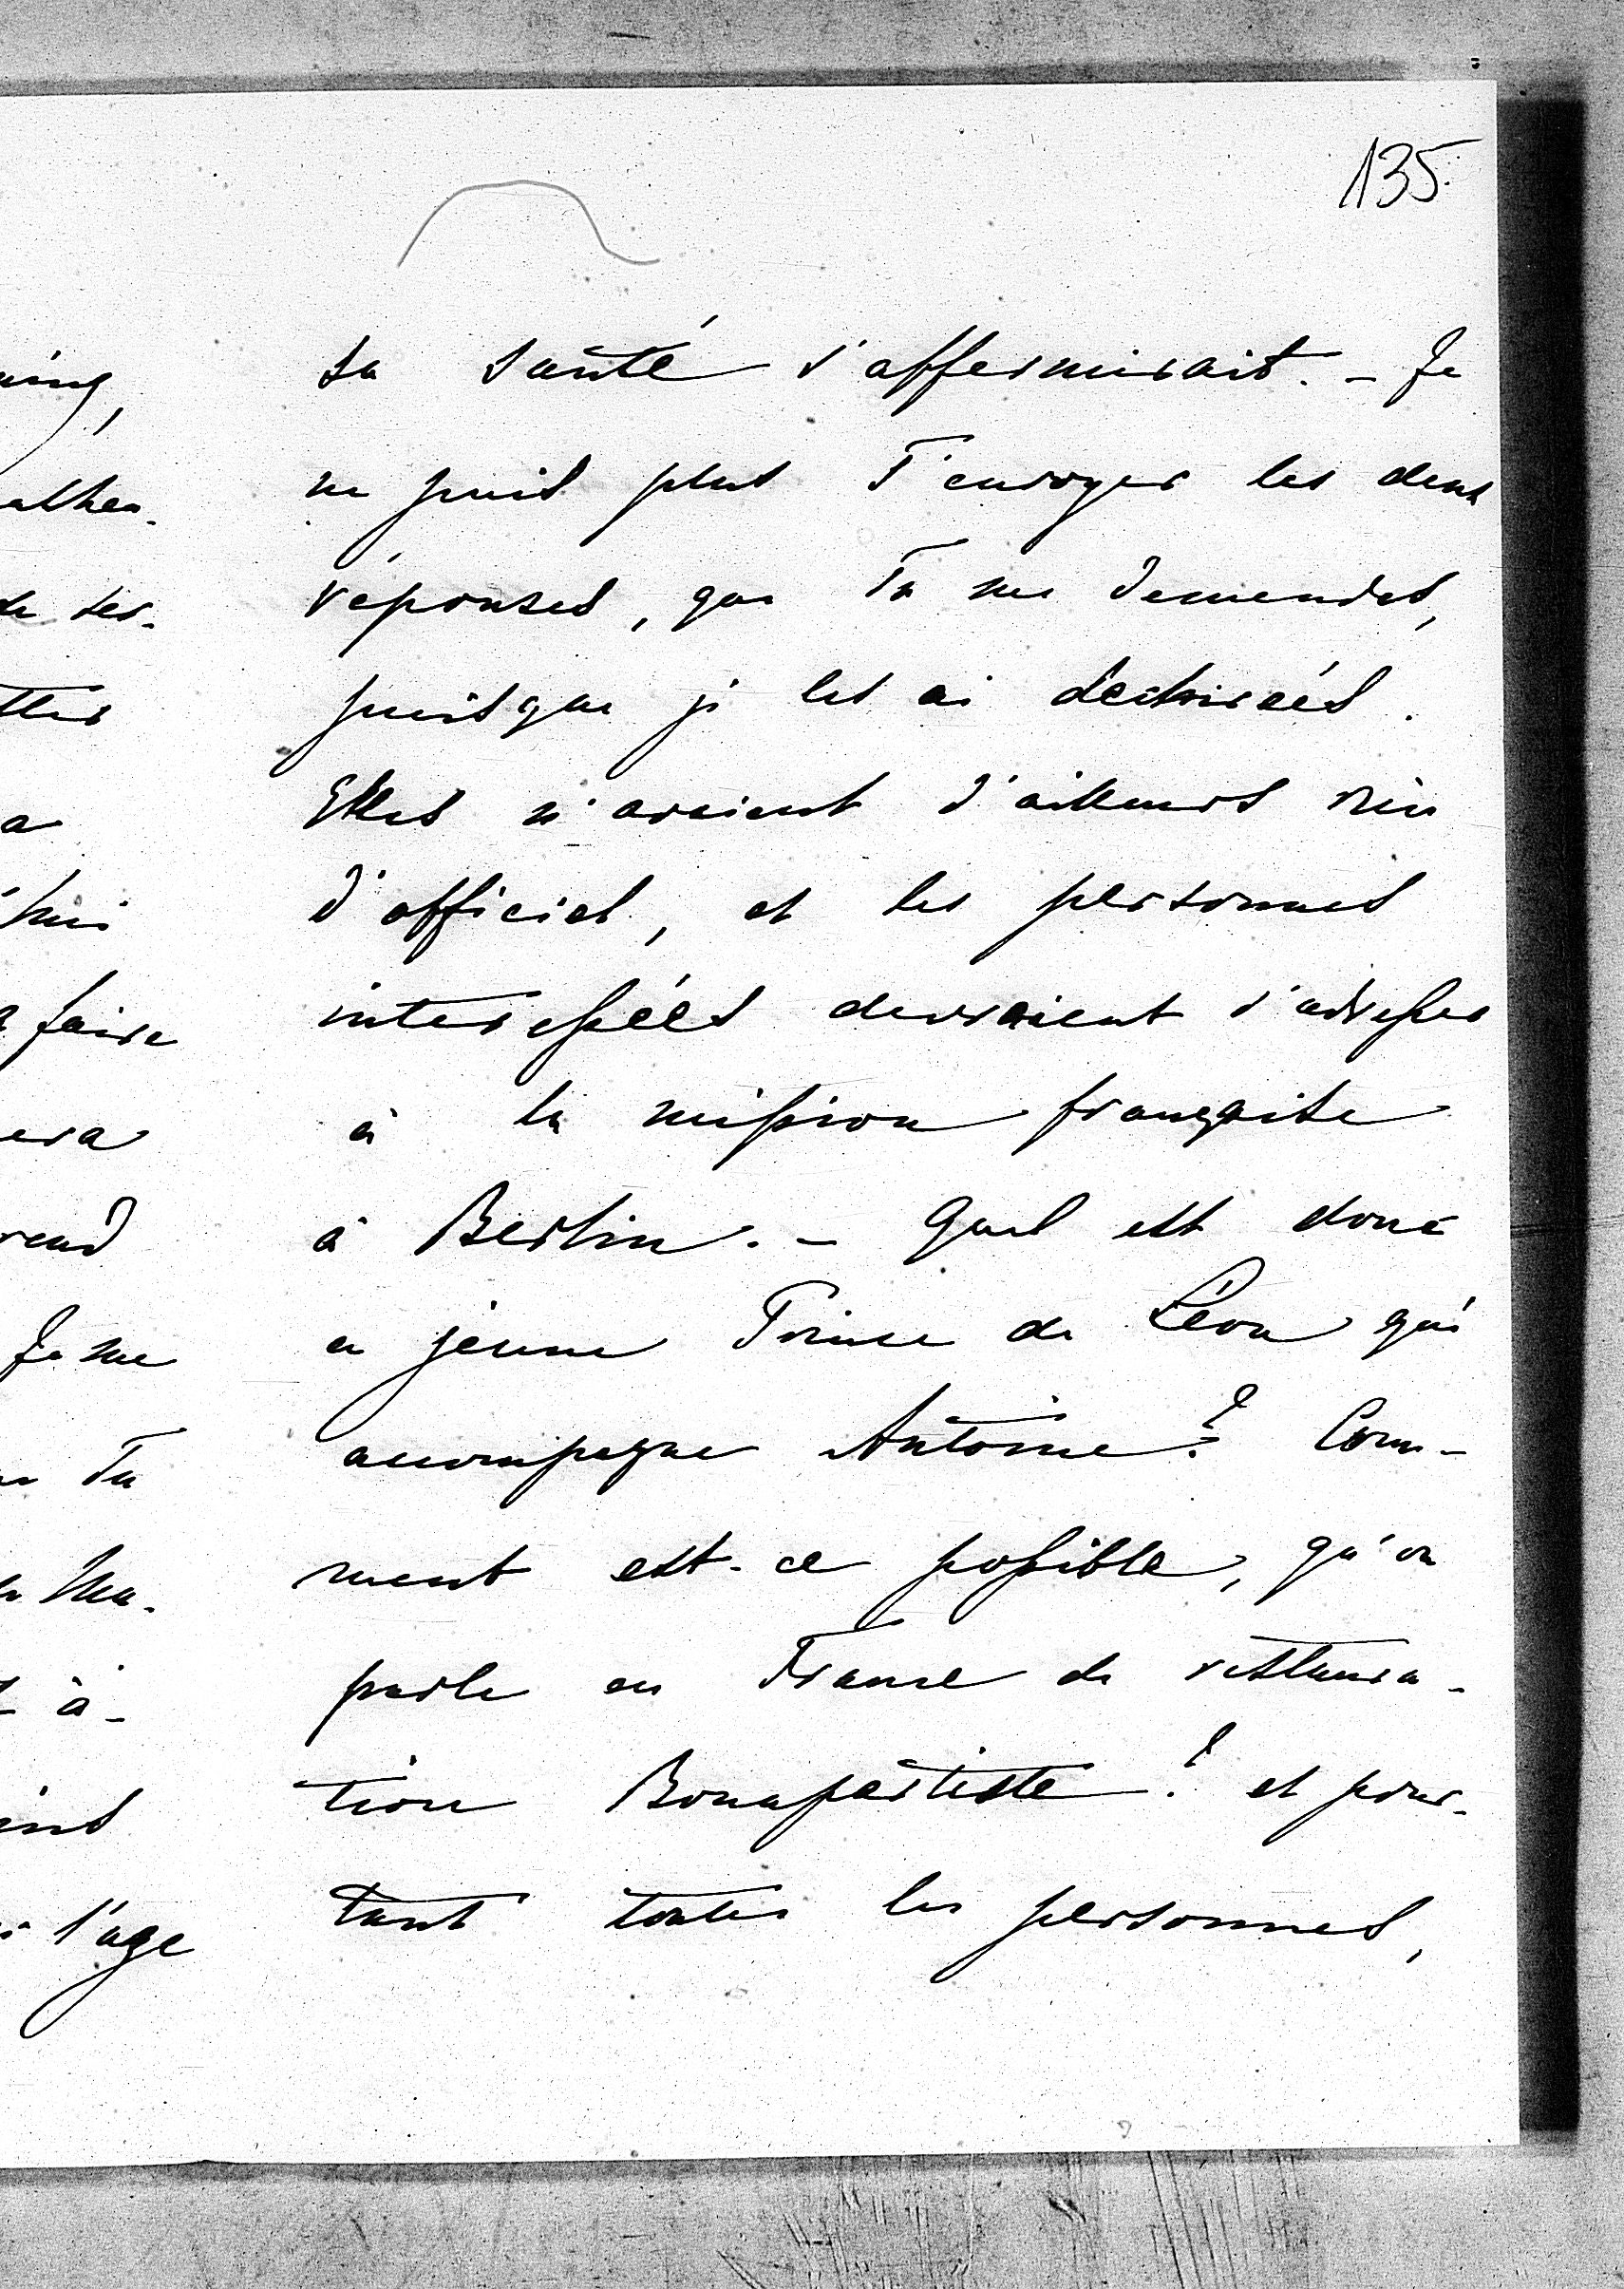 135.
sa santé s'affermirait. - Je
ne puis plus T'envoyer les deux
réponses, que Tu me demendes,
puisque je les ai dechireés.
Elles n'avaient d'ailleurs rien
d'officiel, et les personnes
interesseés devraient s'adresser
à la mission française
à Berlin. - Quel est donc
ce jeune Prince de Léon qui
accompagne Antoine? Com-
ment est-ce possible, qu'on
parle en France de restaura-
tion Bonapartiste? et pour-
tant toutes les personnes,
faire
rend
Je me
Tu
à -
l'age